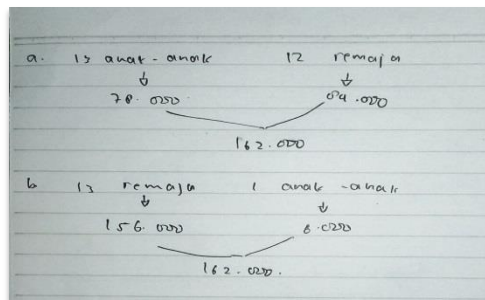 a. 13 anak - anak 12 remaja
78.000 84.000
162.000
b 13 remaja 1 anak - anak
156.000 6.000
162.000.